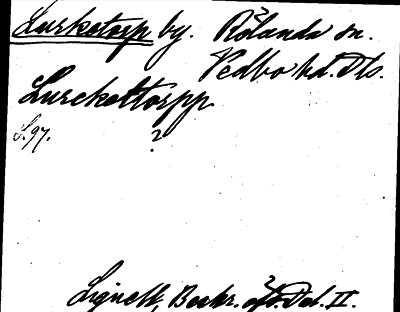 Lurketorp by. Rölanda sn.
Vedbo hd. Dls.
Lurckettorpp
S. 97. ?
Lignell, Beskr. öfv. Dal. II.